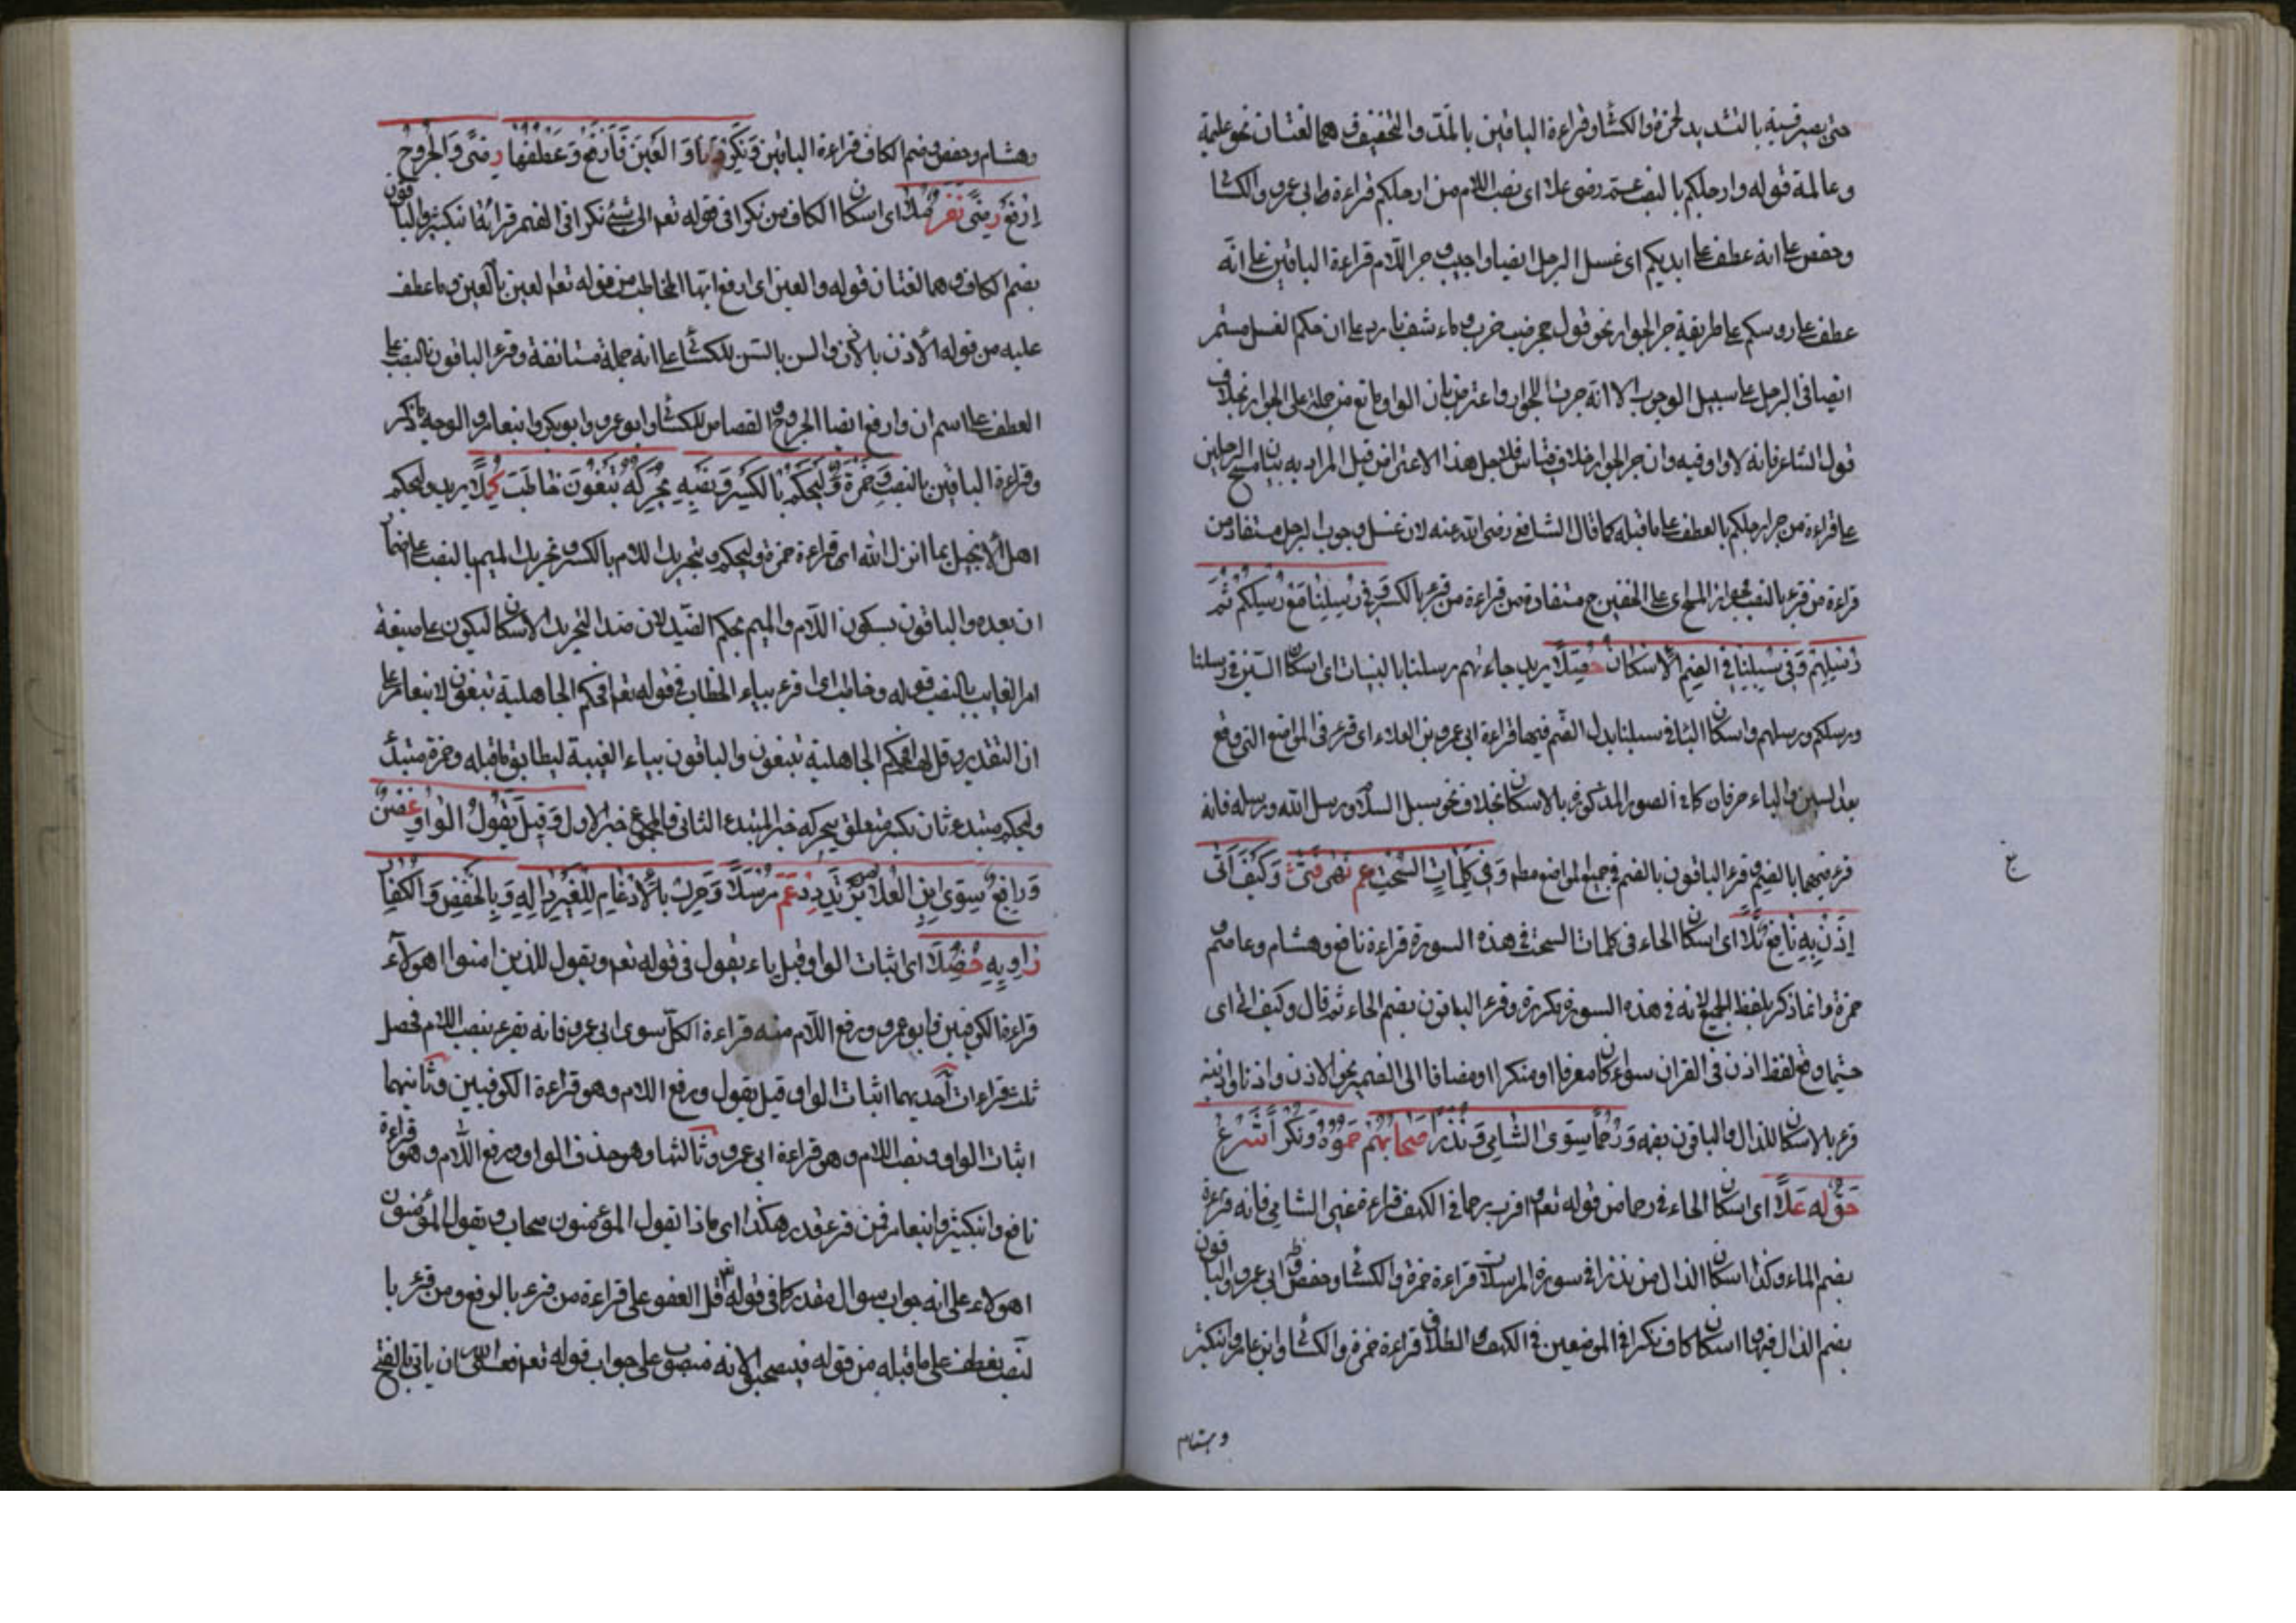 حتى يصير قسية بالتشديد لحمزة والكسٰا وقراءة الباقين بالمد والتخفيف وهما لغتان نحو عليمة
وعالمة قوله وارجلكم بالنصب عم رضى علا اى نصب اللام من ارجلكم قراءة وابى عمرو والكسا
وحفص على انه عطف على ايديكم اى غسل الرجل ايضا واجب وجر اللام قراءة الباقين على انه
عطف على روسكم على طريقة جر الجوار نحو قول جحر ضب خرب وماء شف بارد على ان حكم الغسل مستمر
ايضا فى الرجل على سبيل الوجوب الا انه جر بالجوار واعترض بان الواو مانع من حمله على الجوار بخلاف
قول الشاعر فانه لا واو فيه وان جر الجوار خلاف قياس فلاجل هذا الاعتراض قيل المراد به بيان مسح الرجلين
على قراءة من جر ارجلكم بالعطف على ما قبله كما قال الشافعى رضى الله عنه لان غسل وجوب الرجل مستفاد من
قراءة من قرء بالنصب وجواز المسح اى على الخفين ج مستفادة من قراءة من قرء بالكسر وفى رسلنا مع رسلكم ثم
رسلهم وفى سبلنا فى الضم الاسكان حصلا يريد جاءتهم رسلنا بالبينات اى اسكان السين فى رسلنا
ورسلكم ورسلهم واسكان البا فى سبلنا بدل الضم فيها قراءة ابى عمرو بن العلاء اى قرء فى المواضع التى وقع
بعد السين والباء حرفان كما فى الصور المذكورة بالاسكان بخلاف نحو سبل السلام ورسل الله ورسله فانه
قرء فيهما بالضم وقرء الباقون بالضم فى جميع المواضع مطم وفى كلمات السحت عم نهى فتى وكيف اتى
اذن به نافع تلا اى اسكان الحاء فى كلمات السحت فى هذه السورة قراءة نافع وهشام وعاصم
حمزة وانما ذكر بلفظ الجميع لانه فى هذه السورة مكررة وقرء الباقون بضم الحاء ثم قال وكيف اتى اى
حيثما وقع لفظ اذن فى القران سواء كان معرفا او منكرا او مضافا الى الضمير نحو الاذن واذنا واذنيه
قرء بالاسكان للذال والباقون بضمه ورحما سوى الشامى ونذرا صحابهم حموه ونكرا شرع
حق له علا اى اسكان الحاء فى رحما من قوله تعم واقرب رحما فى الكهف قراءة غير الشامى فانه قراءة
بضم الحاء وكذا اسكان الذال من نذرا فى سورة المرسلات قراءة حمزة والكسا وحفص وابى عمرو والباقون
بضم الذال فيها واسكان كاف نكرا فى الموضعين فى الكهف والطلاق قراءة حمزة والكسا وابن عامر وابن كثير
وهشام
وهشام وحفص وضم الكاف قراءة الباقين والعين فارفع وعطفها رضى والجروح
ارفع رضى نفر ملا اى اسكان الكاف من نكرا فى قوله تعم الى شئ نكر فى القمر قراءة ابن كثير والباقون
بضم الكاف وهما لغتان قوله والعين اى ارفع ايها المخاطب من قوله تعم العين بالعين وما عطف
عليه من قوله الاذن بالاذن والسن بالسن للكسا على انه جملة مستانفة وقرء الباقون بالنصب على
العطف على اسم ان وارفع ايضا الجروح القصاص للكسا وابو عمرو وابن كثير وابن عامر والوجه ما ذكر
وقراءة الباقين بالنصب وحمزة وليحكم بالكسر ونصبه يحركه تبغون خاطب كملا يريد وليحكم
اهل الانجيل بما انزل الله اى قراءة حمزة وليحكم وبتحريك اللام بالكسر وتحريك الميم بالنصب على اضمار
ان بعده والباقون بسكون اللام والميم بحكم الضد لان ضد التحريك الاسكان ليكون على صيغة
امر الغايب بالنصب قوله وخاطب اى قرء بياء الخطاب فى قوله تعم افحكم الجاهلية تبغون لابن عامر على
ان التقدير قل لهم افحكم الجاهلية تبغون والباقون بياء الغيبة ليطابق ما قبله وحمزة مبتدأ
وليحكم مبتدء ثان بكسر متعلق بيحركه خبر المبتدء الثانى والمجموع خبر الاول وقبل يقول الواو غصن
ورافع سوى ابن العلا من يرتدد عم مرسلا وحرك بالادغام للغير داله وبالخفض والكفار
راويه حصلا اى اثبات الواو قبل ياء يقول فى قوله تعم ويقول الذين امنوا اهولاء
قراءة الكوفيين وابو عمرو ورفع اللام منه قراءة الكل سوى ابى عمرو فانه يقرء بنصب اللام فحصل
ثلث قراءات احديهما اثبات الواو قبل يقول ورفع اللام وهو قراءة الكوفيين وثانيهما
اثبات الواو ونصب اللام وهو قراءة ابى عمرو وثالثها وهو حذف الواو ورفع اللام وهو قراءة
نافع وابن كثير وابن عامر فمن قرء قدره هكذا اى ماذا تقول المؤمنون مجاب ويقول المؤمنون
اهولاء على انه جواب سوال مقدر كما فى قوله قل العفو على قراءة من قرء بالرفع ومن قرء با
لنصب بعطف على ما قبله من قوله فيصبحوا لانه منصوب على جواب قوله تعم فعسى الله ان ياتى بالفتح